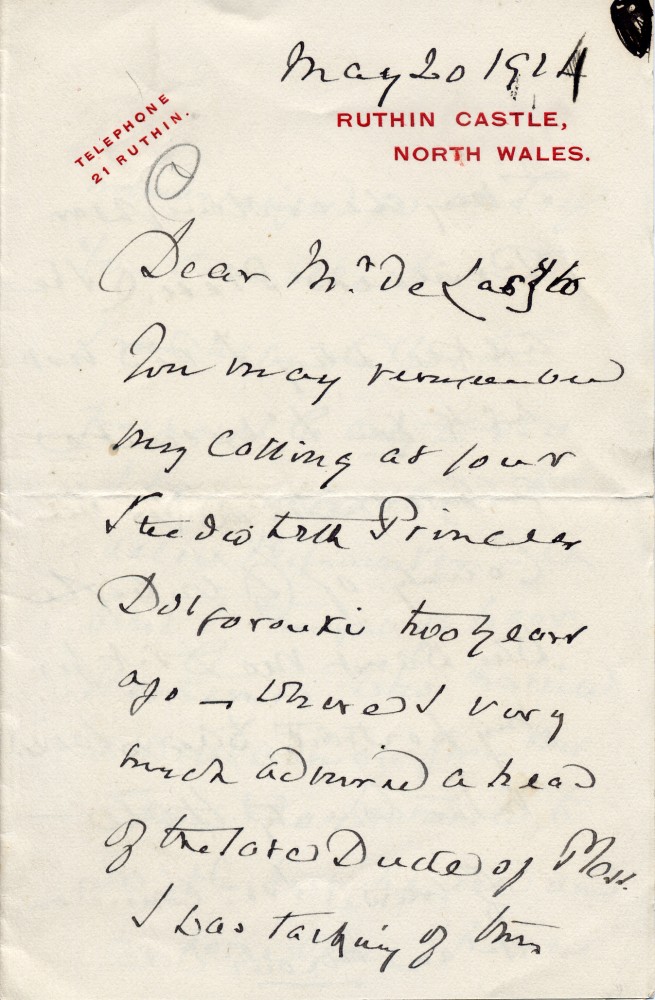 May 20 1914
TELEPHONE
21 RUTHIN.
RUTHIN CASTLE,
NORTH WALES.
Dear Mr. De Laszlo
You may remember
my calling at your
Studio with Princess
Dolgorouki two years
ago – where I very
much admired a head
of the late Duke of
I was talking of this